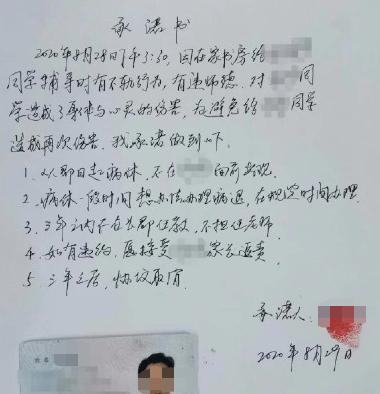 承诺书
2020年8月28日下午3:30,因在家书房给
同学辅导时有不轨行为,有违师德,对 同
学造成了身体与心灵的伤害,为避免给 同学
造成再次伤害,我承诺做到以下。
1、从即日起病休,不在 面前出现。
2、病休一段时间想办法办理病退,在规定时间办理。
3、三年之内不在长郡任教,不担任老师
4、如有违约,愿接受 家长追责
5、三年之后,协议取消
承诺人:
2020年8月29日
姓名